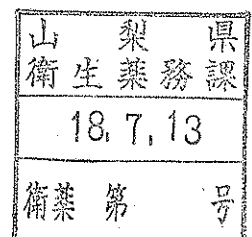 山梨県
衛生薬務課
18.7.13
衛薬第　　号